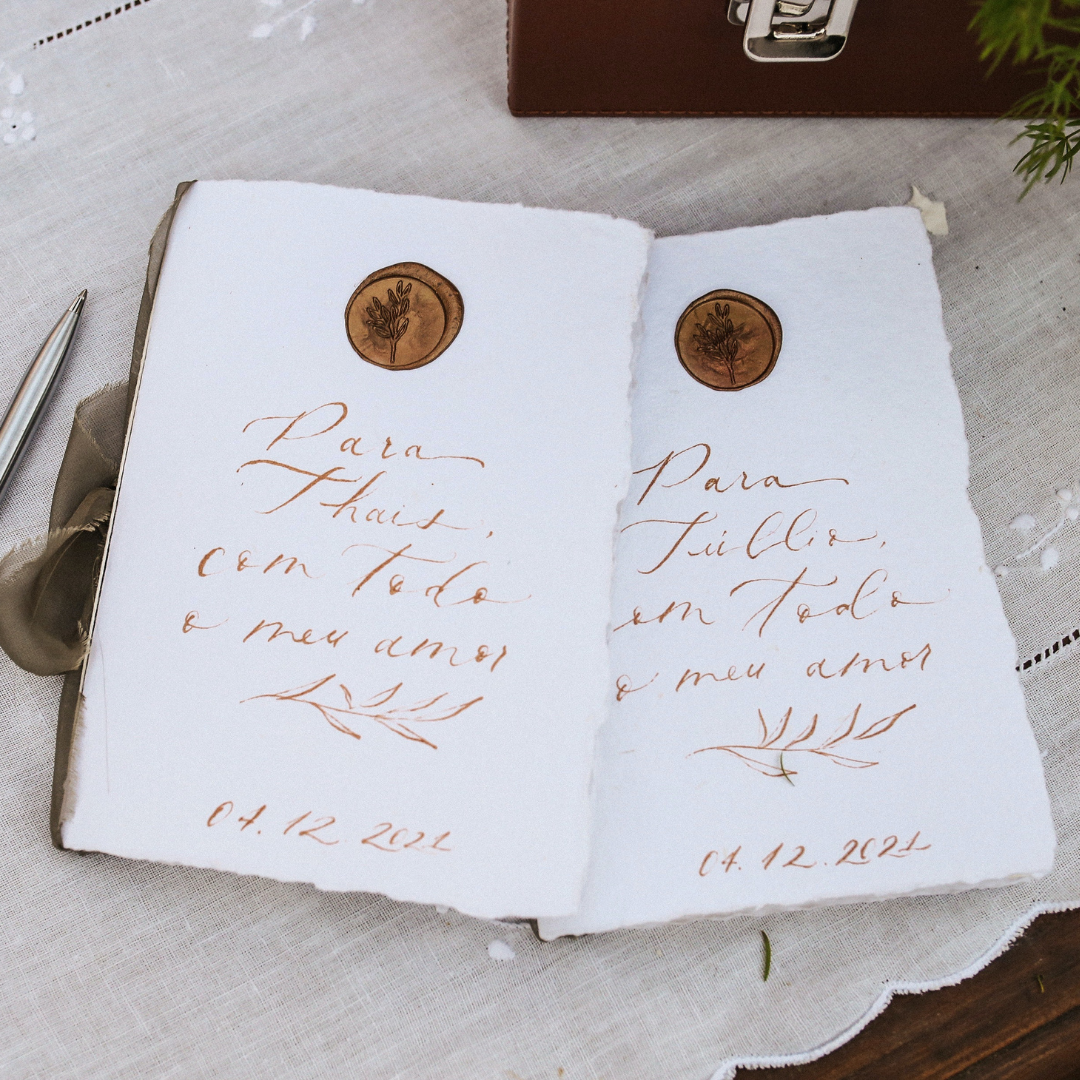 Para
Thais,
com todo
o meu amor
04.12 2021
Para
Túllio,
om todo
o meu amor
04.12.2021